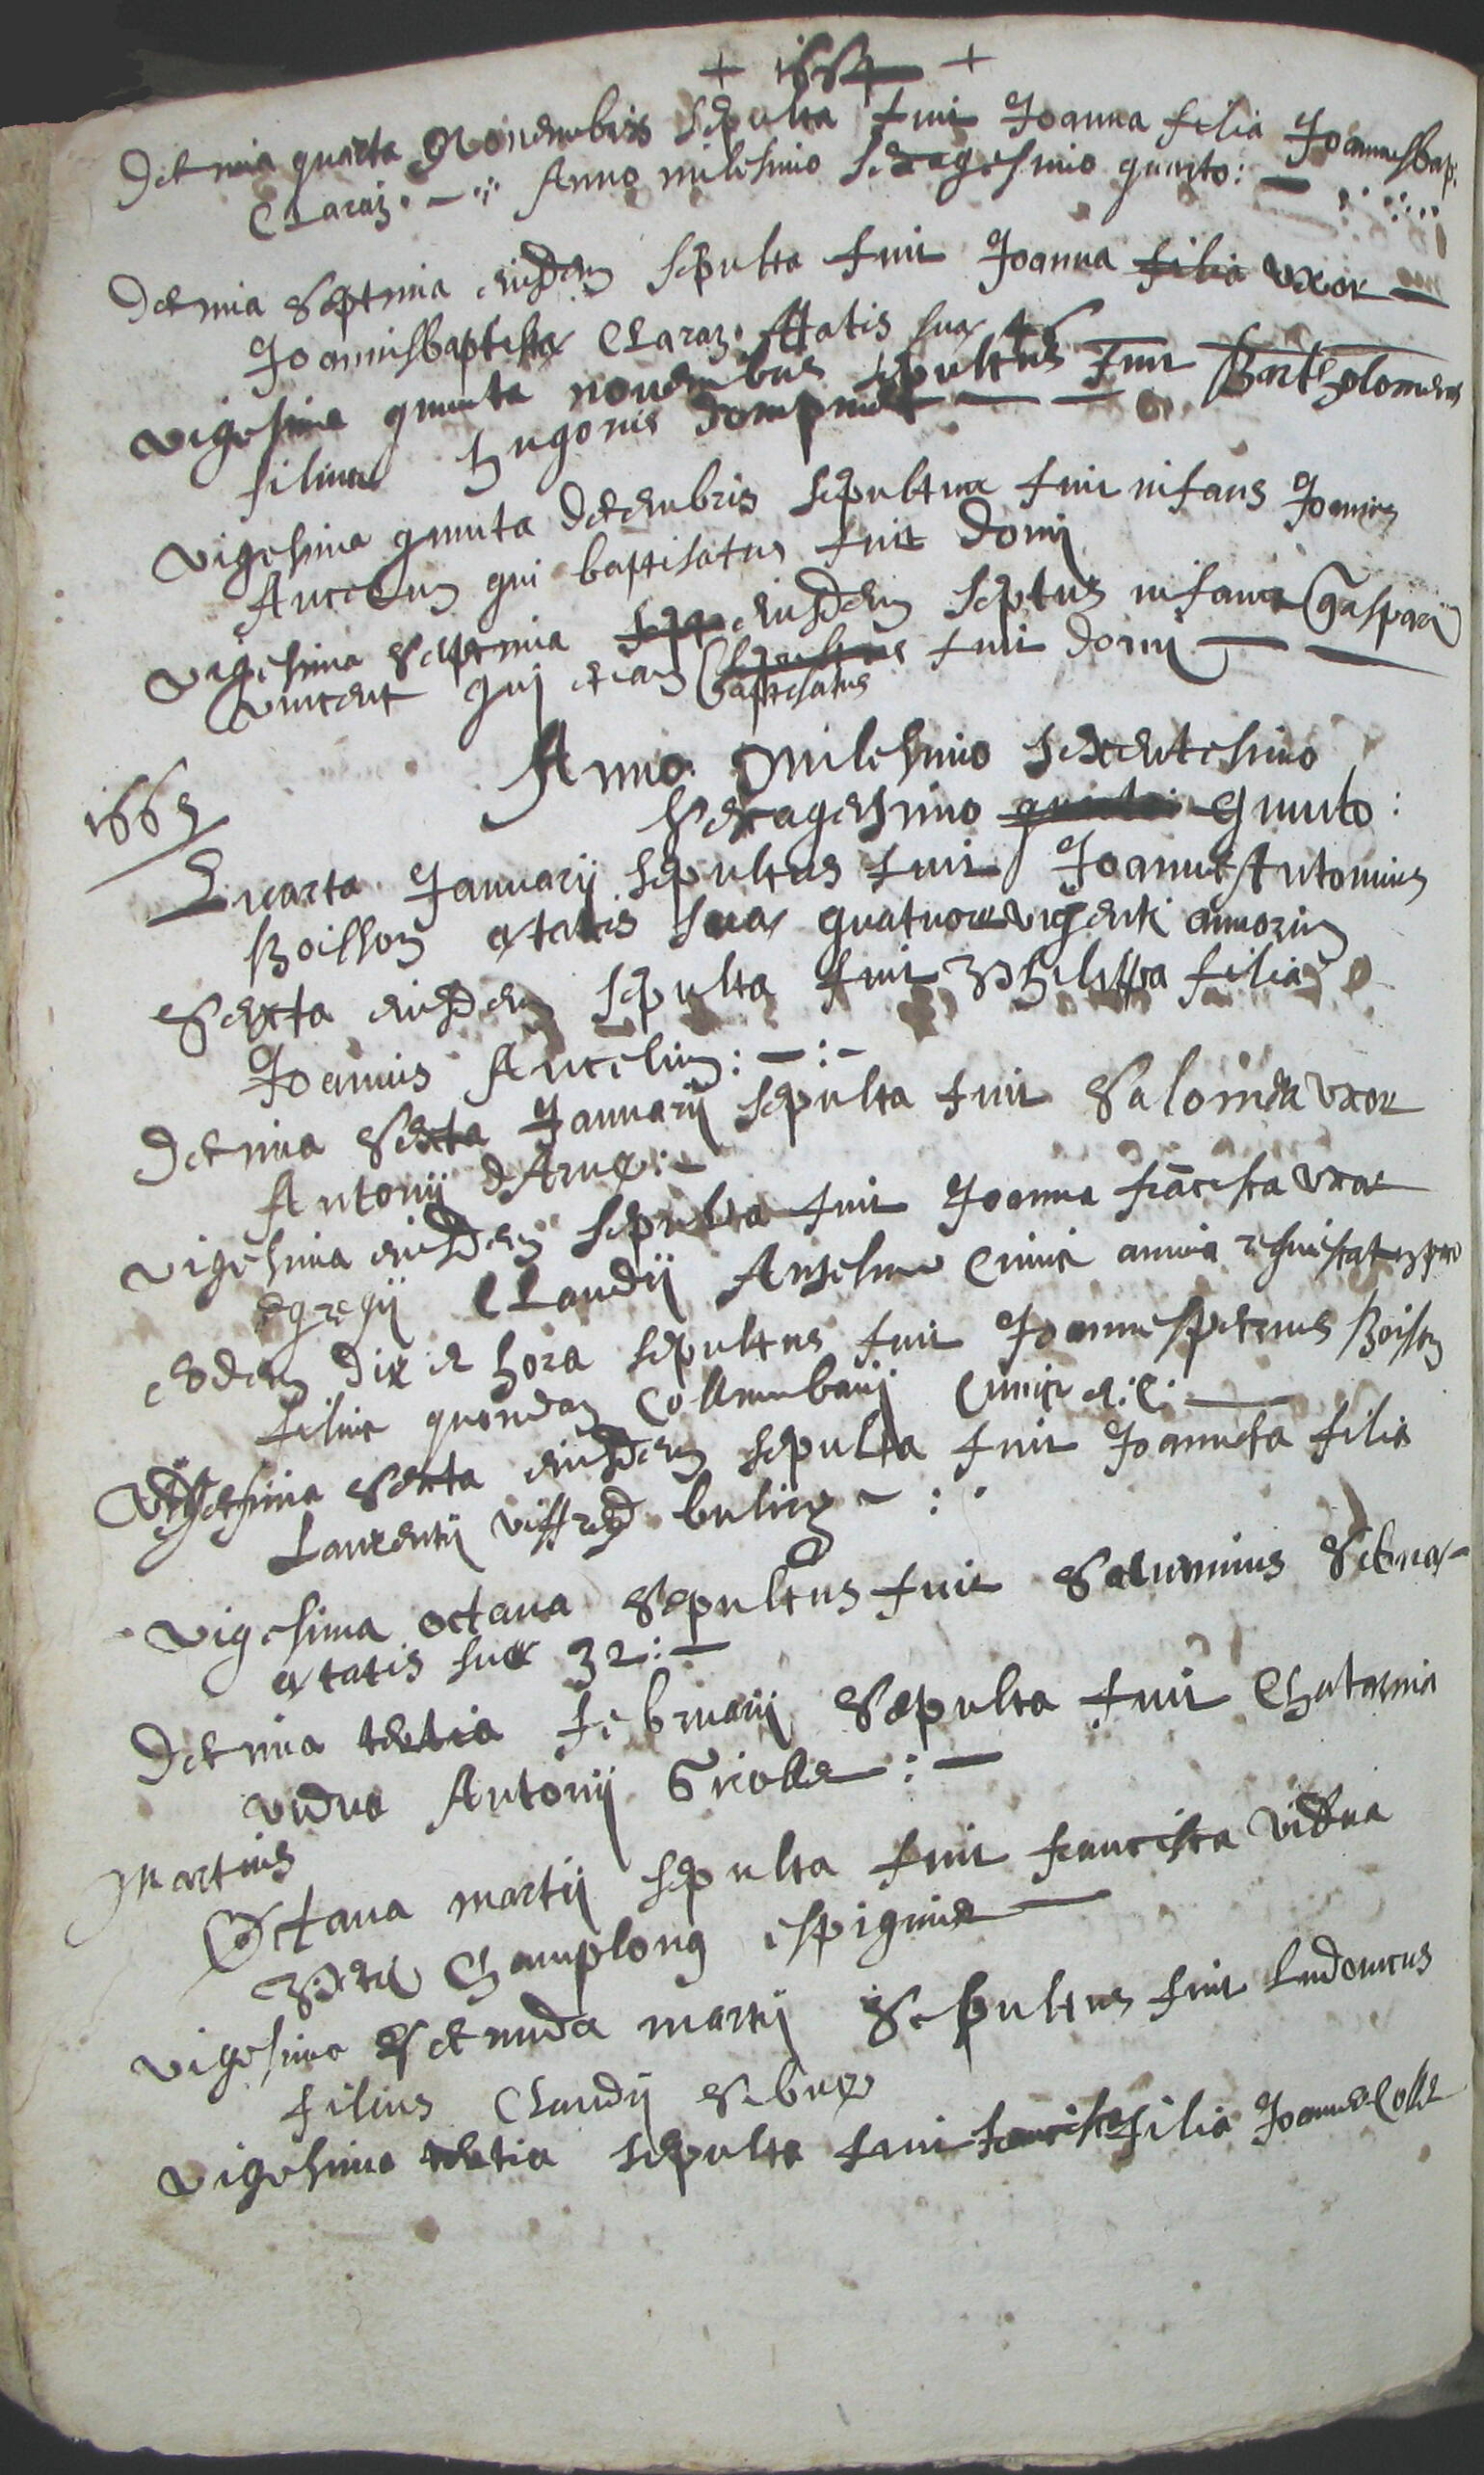 + 1664 +
Decima quarta Novembris sepulta fuit Joanna filia Joannisbap.
Claraz. Anno milesimo sexagesimo quarto:
Decima septima eiusdem sepulta fuit Joanna filia uxor
Joannisbaptistæ Claraz. Ætatis suæ 46
vigesima quinta novembris sepultus fuit Bartholomeus
filius Hugonis
vigesima quinta decembris sepultus fuit infans Joannis
Ancelin qui baptisatus fuit domi
vigesima septima eiusdem septus infans Gasparii
vincent qui etiam sepultus fuit domi
baptisatus
Anno Milesimo sexentesimo
1665
sexagesimo quarto quinto:
Quarta Januarij sepultus fuit Joannes Antonius
Boisson ætatis suæ quatuor vigenti annorum
Sexta eiusdem sepulta fuit Philippa filia
Joannis Ancelin:
Decima sexta Januarij sepulta fuit Salomea uxor
Antonij
vigesima eiusdem sepulta fuit Joanna frācisca uxor
egregij Claudij Anselme cuius anima requiescat
eodem die et hora sepultus fuit Joannespetrus Boisson
filius quondam Collumbani cuius
Vigesima sexta eiusdem sepulta fuit Joanneta filia
Laurentij
vigesima octava sepultus fuit Saturninus
ætatis suæ 32:
Decima tertia februarij sepulta fuit Chatarina
vidua Antonij
Martius
Octava martij sepulta fuit francisca vidua
Petri Champlong
vigesima secunda martij Sepultus fuit Ludovicus
filius Claudij
vigesima tertia sepulta fuit filia Joannis Colle